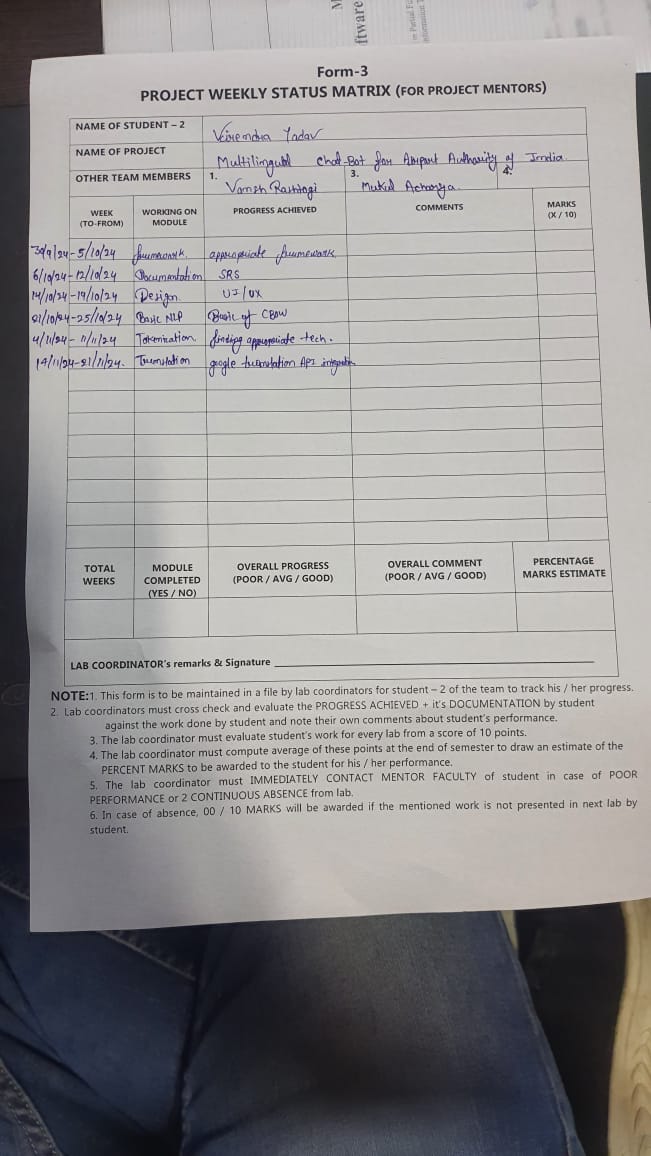 ftware
Form-3
PROJECT WEEKLY STATUS MATRIX (FOR PROJECT MENTORS)
NAME OF STUDENT – 2 Virendra Yadav
NAME OF PROJECT Multilingual Chat-Bot for Airport Authority of India.
OTHER TEAM MEMBERS 1. Vansh Rastogi 3. Mukul Acharya 4.
WEEK (TO-FROM) WORKING ON MODULE PROGRESS ACHIEVED COMMENTS MARKS (X / 10)
30/9/24-5/10/24 framework appropriate framework
6/10/24-12/10/24 Documentation SRS
14/10/24-19/10/24 Design UI/UX
21/10/24-25/10/24 Basic NLP Basic of CBOW
4/11/24- 11/11/24 Tokenization finding appropriate tech.
14/11/24-21/11/24. Translation google translation API integration
TOTAL WEEKS MODULE COMPLETED (YES / NO) OVERALL PROGRESS (POOR / AVG / GOOD) OVERALL COMMENT (POOR / AVG / GOOD) PERCENTAGE MARKS ESTIMATE
LAB COORDINATOR's remarks & Signature
NOTE:1. This form is to be maintained in a file by lab coordinators for student – 2 of the team to track his / her progress.
2. Lab coordinators must cross check and evaluate the PROGRESS ACHIEVED + it's DOCUMENTATION by student
against the work done by student and note their own comments about student's performance.
3. The lab coordinator must evaluate student's work for every lab from a score of 10 points.
4. The lab coordinator must compute average of these points at the end of semester to draw an estimate of the
PERCENT MARKS to be awarded to the student for his / her performance.
5. The lab coordinator must IMMEDIATELY CONTACT MENTOR FACULTY of student in case of POOR
PERFORMANCE or 2 CONTINUOUS ABSENCE from lab.
6. In case of absence, 00 / 10 MARKS will be awarded if the mentioned work is not presented in next lab by
student.